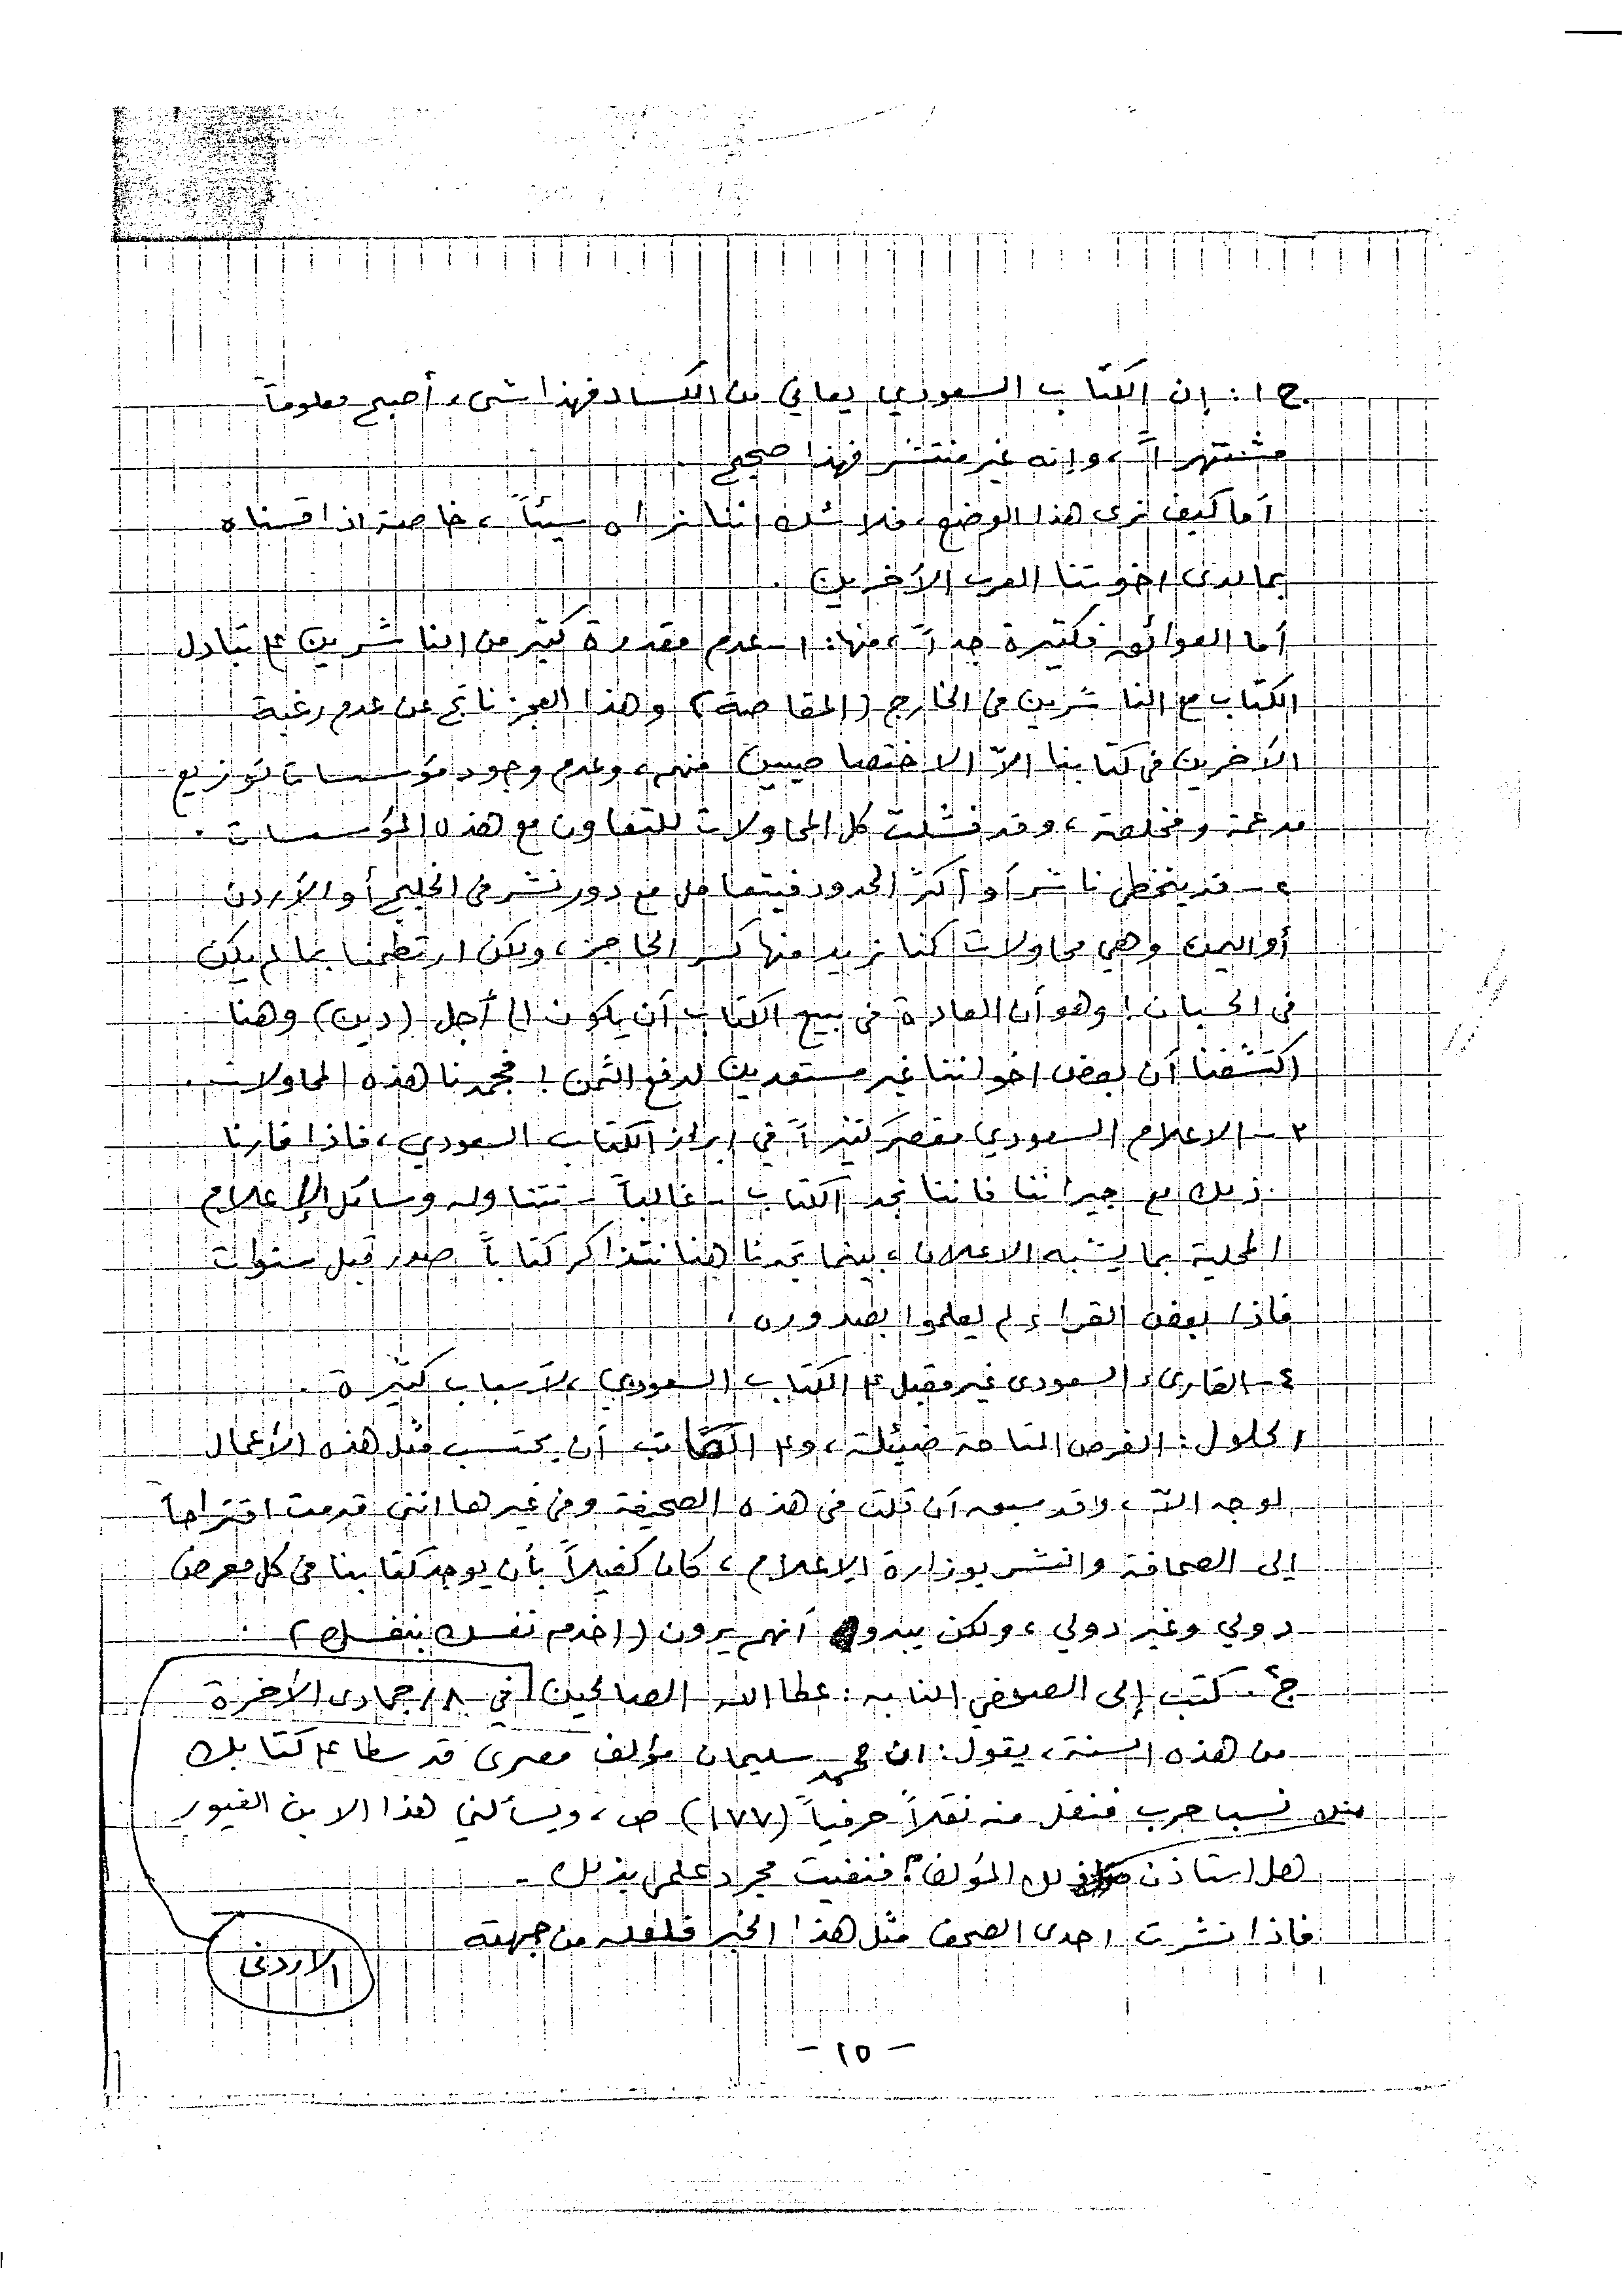 ج١: إن الكتاب السعودي يعاني من الكساد فهذا شيء أصبح معلوماً
مشتهراً، وإنه غير منتشر فهذا صحيح.
أما كيف نرى هذا الوضع، فلا شك اننا نراه سيئاً، خاصة اذا قسناه
بما لدى اخوتنا العرب الآخرين.
أما العوائق فكثيرة جداً، منها: ١- عدم مقدرة كثير من الناشرين على تبادل
الكتاب مع الناشرين في الخارج (المقاصة) وهذا العجز ناتج عن عدم رغبة
الآخرين في كتابنا الاّ الاختصاصيين منهم، وعدم وجود مؤسسات توزيع
مدعمة ومخلصة، وقد فشلت كل المحاولات للتعاون مع هذه المؤسسات.
٢- قد يتخطى ناشر أو أكثر الحدود فيتعامل مع دور نشر في الخليج أو الأردن
أو اليمن وهي محاولات كنا نريد منها كسر الحاجز، ولكن ارتطمنا بما لم يكن
في الحسبان! وهو أن العادة في بيع الكتاب أن يكون الى أجل (دين) وهنا
اكتشفنا أن بعض اخواننا غير مستعدين لدفع الثمن! فجمدنا هذه المحاولات.
٣- الاعلام السعودي مقصر كثيراً في ابراز الكتاب السعودي، فاذا قارنا
ذلك مع جيراننا فاننا نجد الكتاب - غالباً - تتناوله وسائل الإعلام
المحلية بما يشبه الاعلان، بينما تجدنا هنا نتذاكر كتاباً صدر قبل سنوات
فاذا بعض القراء لم يعلموا بصدوره.
٤- القارىء السعودى غير مقبل على الكتاب السعودي، لأسباب كثيرة.
الحلول: الفرص المتاحة ضئيلة، وعلى الكاتب أن يحتسب مثل هذه الأعمال
لوجه الله، وقد سبق أن قلت في هذه الصحيفة وفي غيرها انني قدمت اقتراحاً
إلى الصحافة والنشر بوزارة الإعلام، كان كفيلاً بأن يوجد كتابنا في كل معرض
دولي وغير دولي، ولكن يبدو أنهم يرون (اخدم نفسك بنفسك).
ج٢- كتب إلى الصحفي النابه: عطا الله الصالحين في ١٨ جمادى الآخرة
من هذه السنة، يقول: ان محمد سليمان مؤلف مصرى قد سطا على كتابك
نسب حرب فنقل منه نقلاً حرفياً (١٧٧) ص، ويسألني هذا الابن الغيور
هل استاذن ذلك المؤلف؟ فنفيت مجرد علمي بذلك.
فاذا نشرت احدى الصحف مثل هذا الخبر فلعله من جهته
الاردني
- ١٥ -